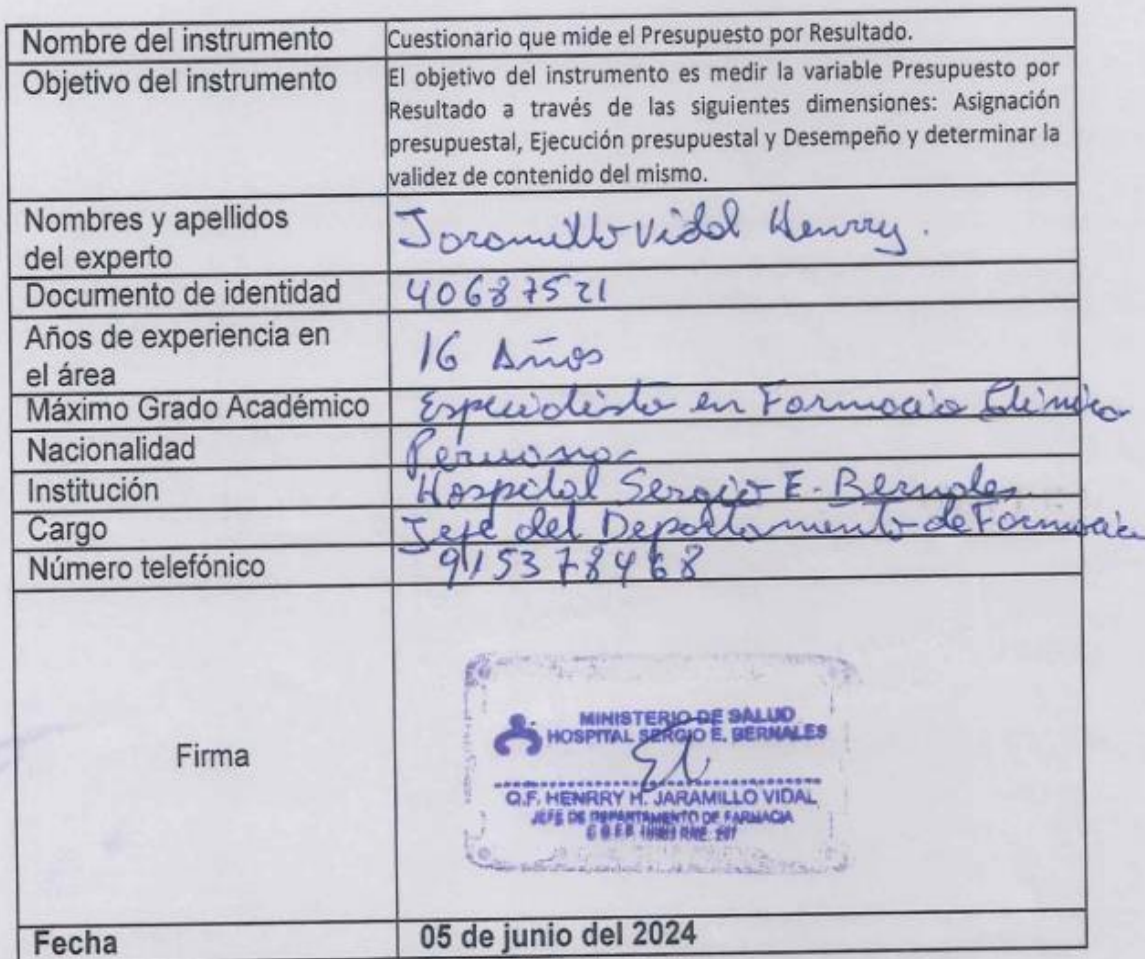 Nombre del instrumento
Cuestionario que mide el Presupuesto por Resultado.
Objetivo del instrumento
El objetivo del instrumento es medir la variable Presupuesto por
Resultado a través de las siguientes dimensiones: Asignación
presupuestal, Ejecución presupuestal y Desempeño y determinar la
validez de contenido del mismo.
Nombres y apellidos
del experto
Jaramillo Vidal Henrry.
Documento de identidad
40687521
Años de experiencia en
el área
16 Años
Máximo Grado Académico
Especialista en Farmacia Clínica
Nacionalidad
Peruana
Institución
Hospital Sergio E. Bernales.
Cargo
Jefe del Departamento de Farmacia
Número telefónico
915378468
Firma
MINISTERIO DE SALUD
HOSPITAL SERGIO E. BERNALES
Q.F. HENRRY H. JARAMILLO VIDAL
JEFE DE DEPARTAMENTO DE FARMACIA
Fecha
05 de junio del 2024